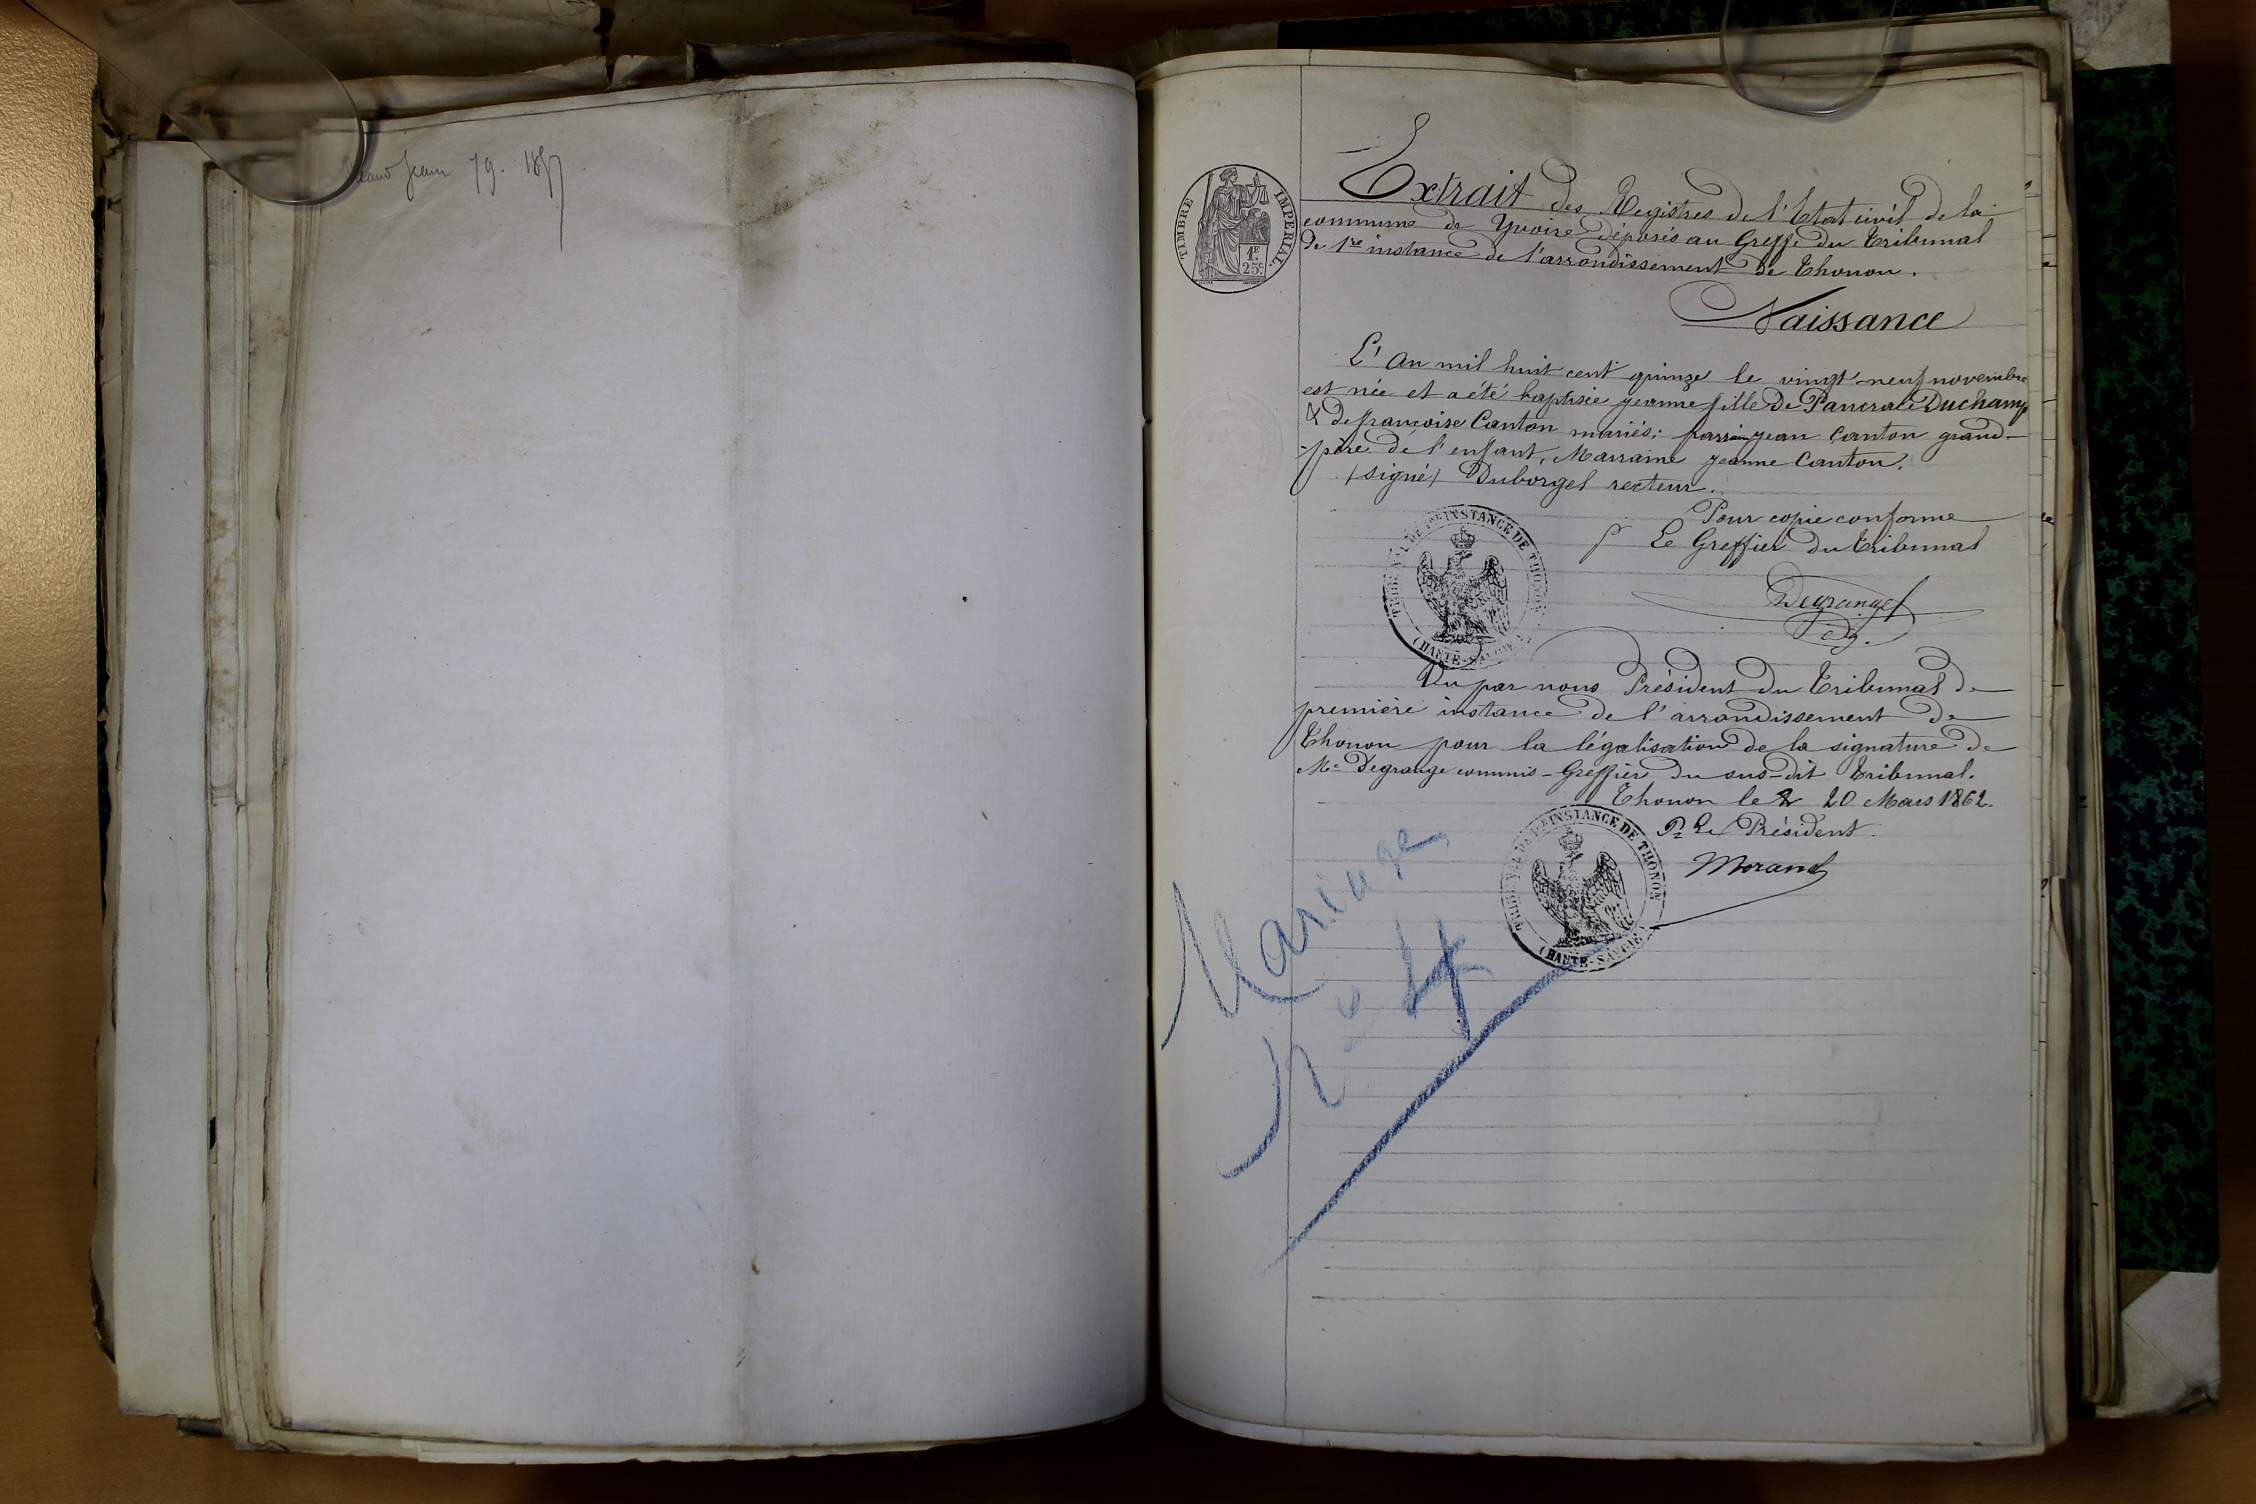 Jean 79. 1857
TIMBRE IMPERIAL.
1F.
25c.
Extrait des Registres de l'Etat civil de la
commune de Yvoire déposés au Greffe du Tribunal
de 1re instance de l'arrondissement de Thonon.
Naissance
L'An mil huit cent quinze le vingt-neuf novembre
est née et a été baptisée jeanne fille de Pancrace Duchamp
& de françoise Canton mariés; parrain jean Canton grand-
-père de l'enfant, Marraine jeanne Canton.
(signé) Duborgel recteur.
Pour copie conforme
p Le Greffier du Tribunal
TRIBUNAL DE 1RE INSTANCE DE THONON
(HAUTE-SAVOIE)
Degrange
Vu par nous Président du Tribunal de
première instance de l'arrondissement de
Thonon pour la légalisation de la signature de
Me Degrange commis-Greffier du sus-dit Tribunal.
Thonon le 20 Mars 1862.
Pr Le Président.
Morand
TRIBUNAL DE 1RE INSTANCE DE THONON
(HAUTE-SAVOIE)
Mariage
No